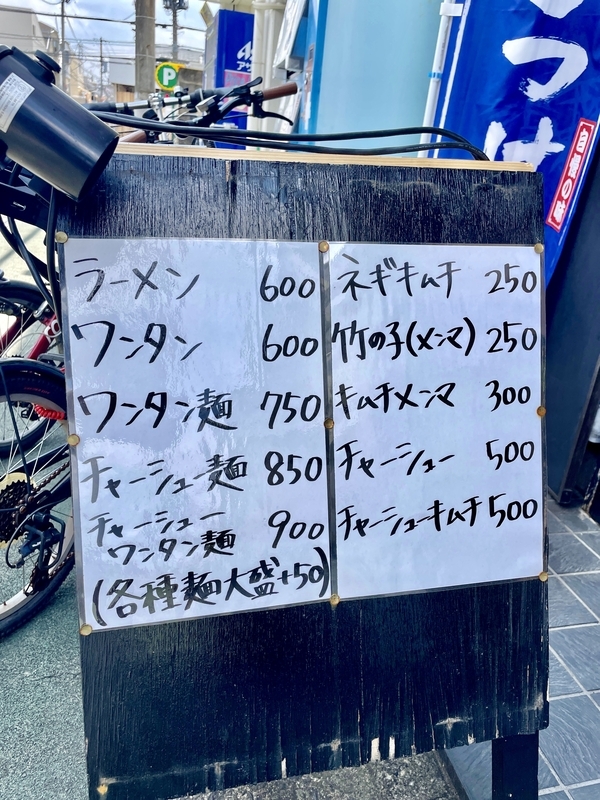 ラーメン 600
ワンタン 600
ワンタン麺 750
チャーシュー麺 850
チャーシュー
ワンタン麺 900
(各種麺大盛+50)
ネギキムチ 250
竹の子(メンマ) 250
キムチメンマ 300
チャーシュー 500
チャーシューキムチ 500
P
つけ